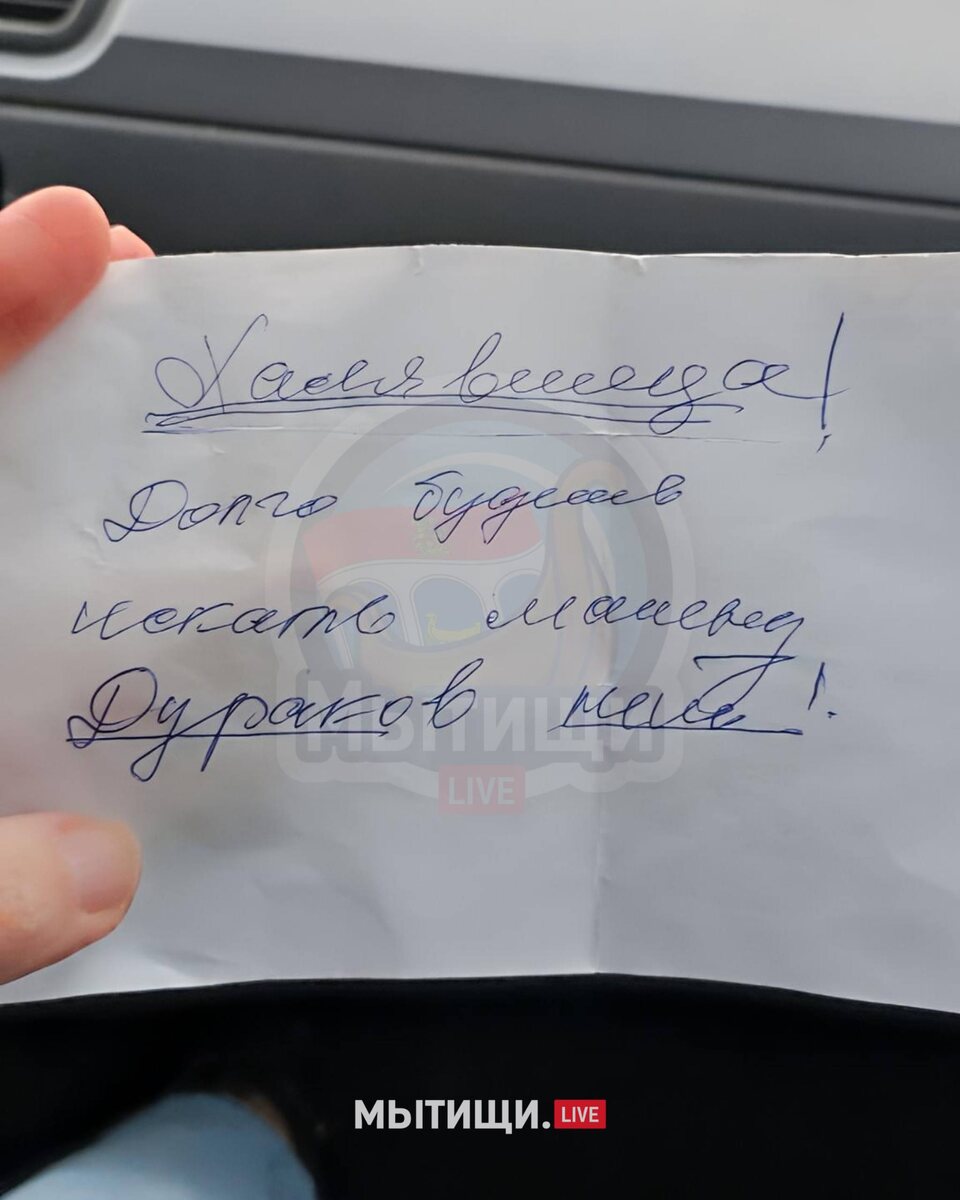 Халявщица!
Долго будешь
искать машину
Дураков нет!
МЫТИЩИ
LIVE
МЫТИЩИ. LIVE